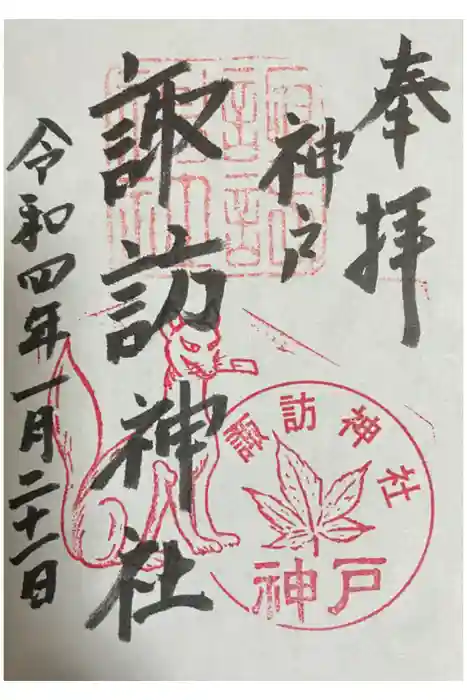 奉拝
神戸
諏訪神社
令和四年一月二十一日
諏訪神社
神戸